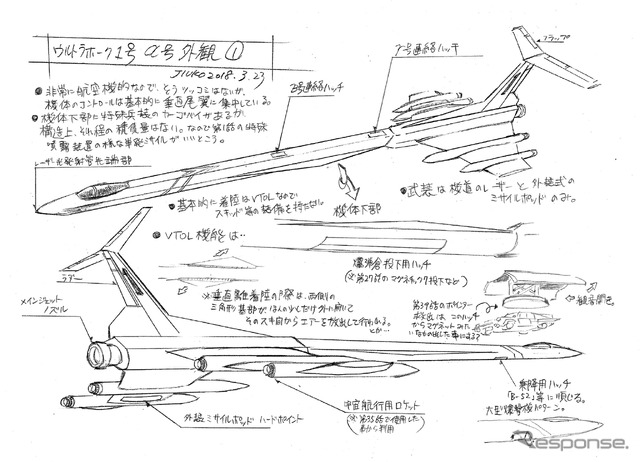 ウルトラホーク1号 α号 外観 ①
JIUKO 2018.3.23
●非常に航空機的なので、どうツッコミはないが、
機体のコントロールは基本的に垂直尾翼に集中している。
●機体下部に特殊兵装のカーゴベイがあるが、
構造上、それ程の積載量はない。なので第1話の特殊
噴霧装置の様な単能ミサイルがいいところ。
レーザー光発射管先端部
β号連絡ハッチ
γ号連絡ハッチ
フラップ
●基本的に着陸はVTOLなので
スキッド等の装備を持たない。
機体下部
●武装は機首のレーザーと外装式の
ミサイルポッドのみ。
●VTOL機能は…
※垂直離着陸の際は、両側の
三角形基部がほんの少しだけ外に開いて
そのスキ間からエアーを放出して行われる。
とか…
爆弾倉投下用ハッチ
(※第27話のマグネチック7投下など)
第39話のポインター
救出は、このハッチ
からマグネットみた
いなもの出した事にする?
ラダー
メインジェット
ノズル
外装ミサイルポッド ハードポイント
宇宙航行用ロケット
(※第35話で使用した
事から判明)
乗降用ハッチ
「B-52」等に順じる。
大型爆撃機パターン。
Response.